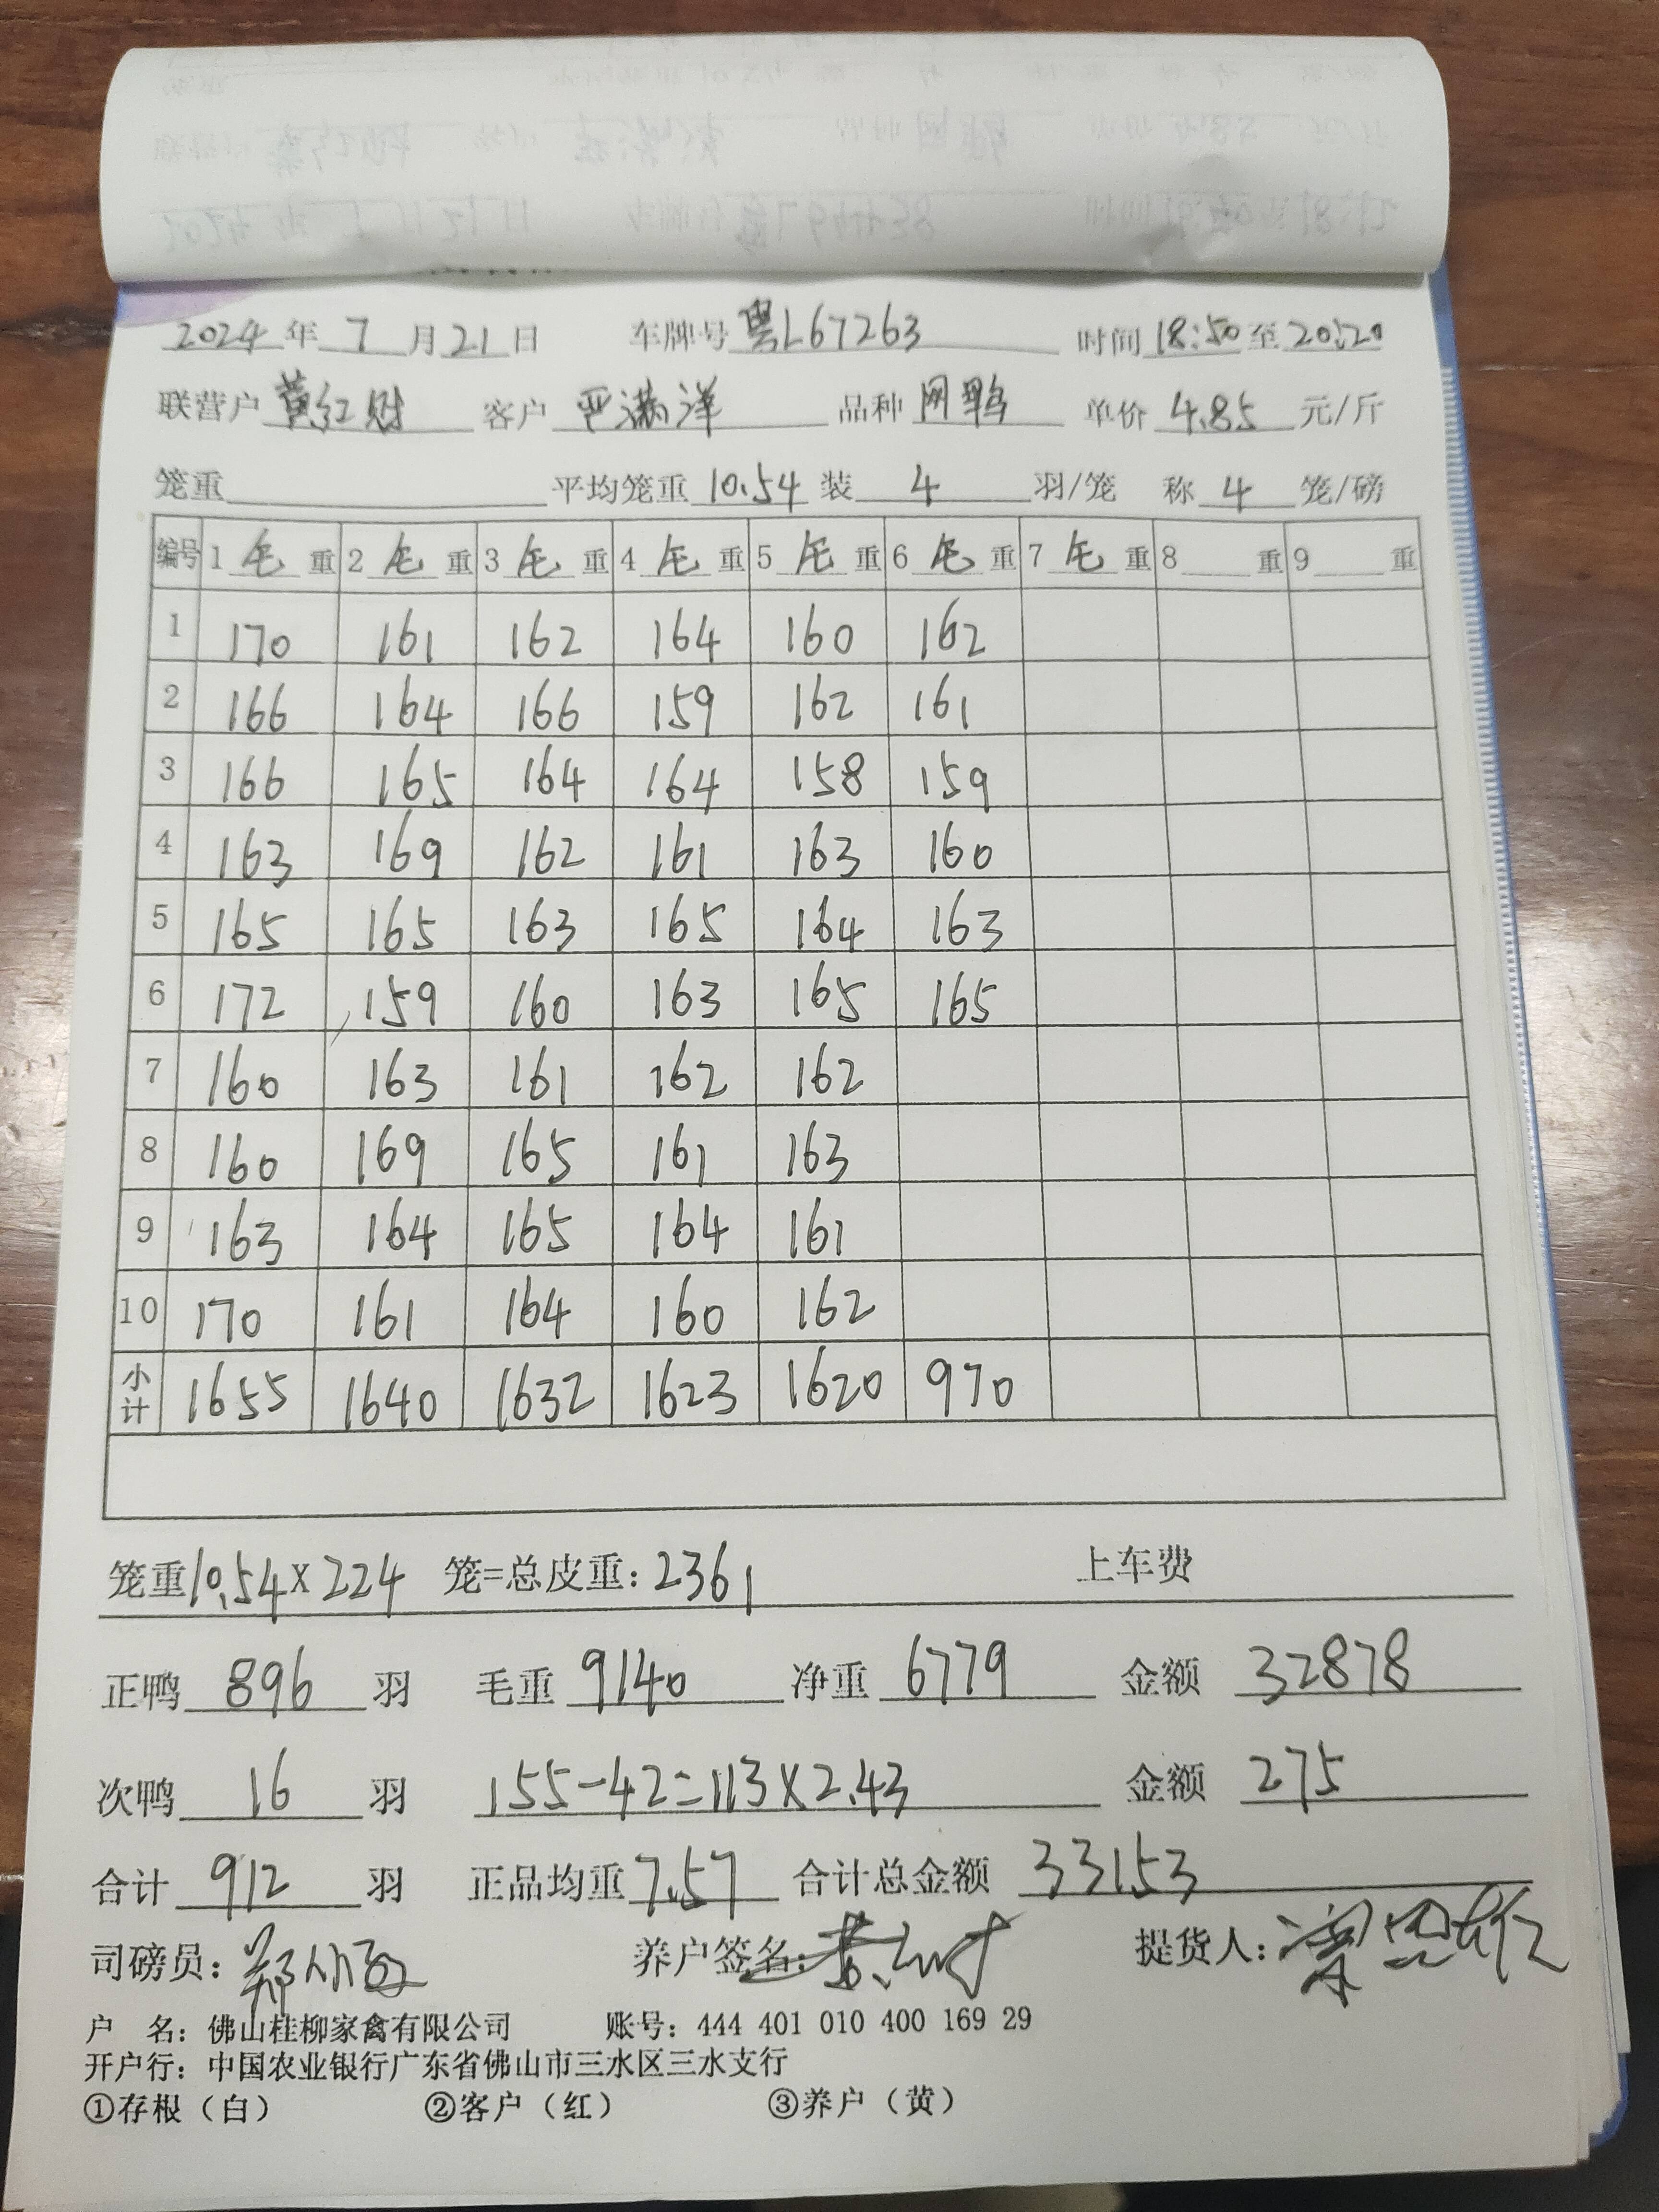 2024 年 7 月 21 日 车牌号 粤L67263 时间 18:50 至 20:20
联营户 黄红财 客户 严满洋 品种 网鸭 单价 4.85 元/斤
笼重 平均笼重 10.54 装 4 羽/笼 称 4 笼/磅
编号 1 毛 重 2 毛 重 3 毛 重 4 毛 重 5 毛 重 6 毛 重 7 毛 重 8 重 9 重
1 170 161 162 164 160 162
2 166 164 166 159 162 161
3 166 165 164 164 158 159
4 163 169 162 161 163 160
5 165 165 163 165 164 163
6 172 159 160 163 165 165
7 160 163 161 162 162
8 160 169 165 161 163
9 163 164 165 164 161
10 170 161 164 160 162
小计 1655 1640 1632 1623 1620 970
笼重 10.54 X 224 笼=总皮重: 2361 上车费
正鸭 896 羽 毛重 9140 净重 6779 金额 32878
次鸭 16 羽 155-42=113X2.43 金额 275
合计 912 羽 正品均重 7.57 合计总金额 33153
司磅员: 养户签名: 提货人:
户 名: 佛山桂柳家禽有限公司 账号: 444 401 010 400 169 29
开户行: 中国农业银行广东省佛山市三水区三水支行
①存根（白） ②客户（红） ③养户（黄）